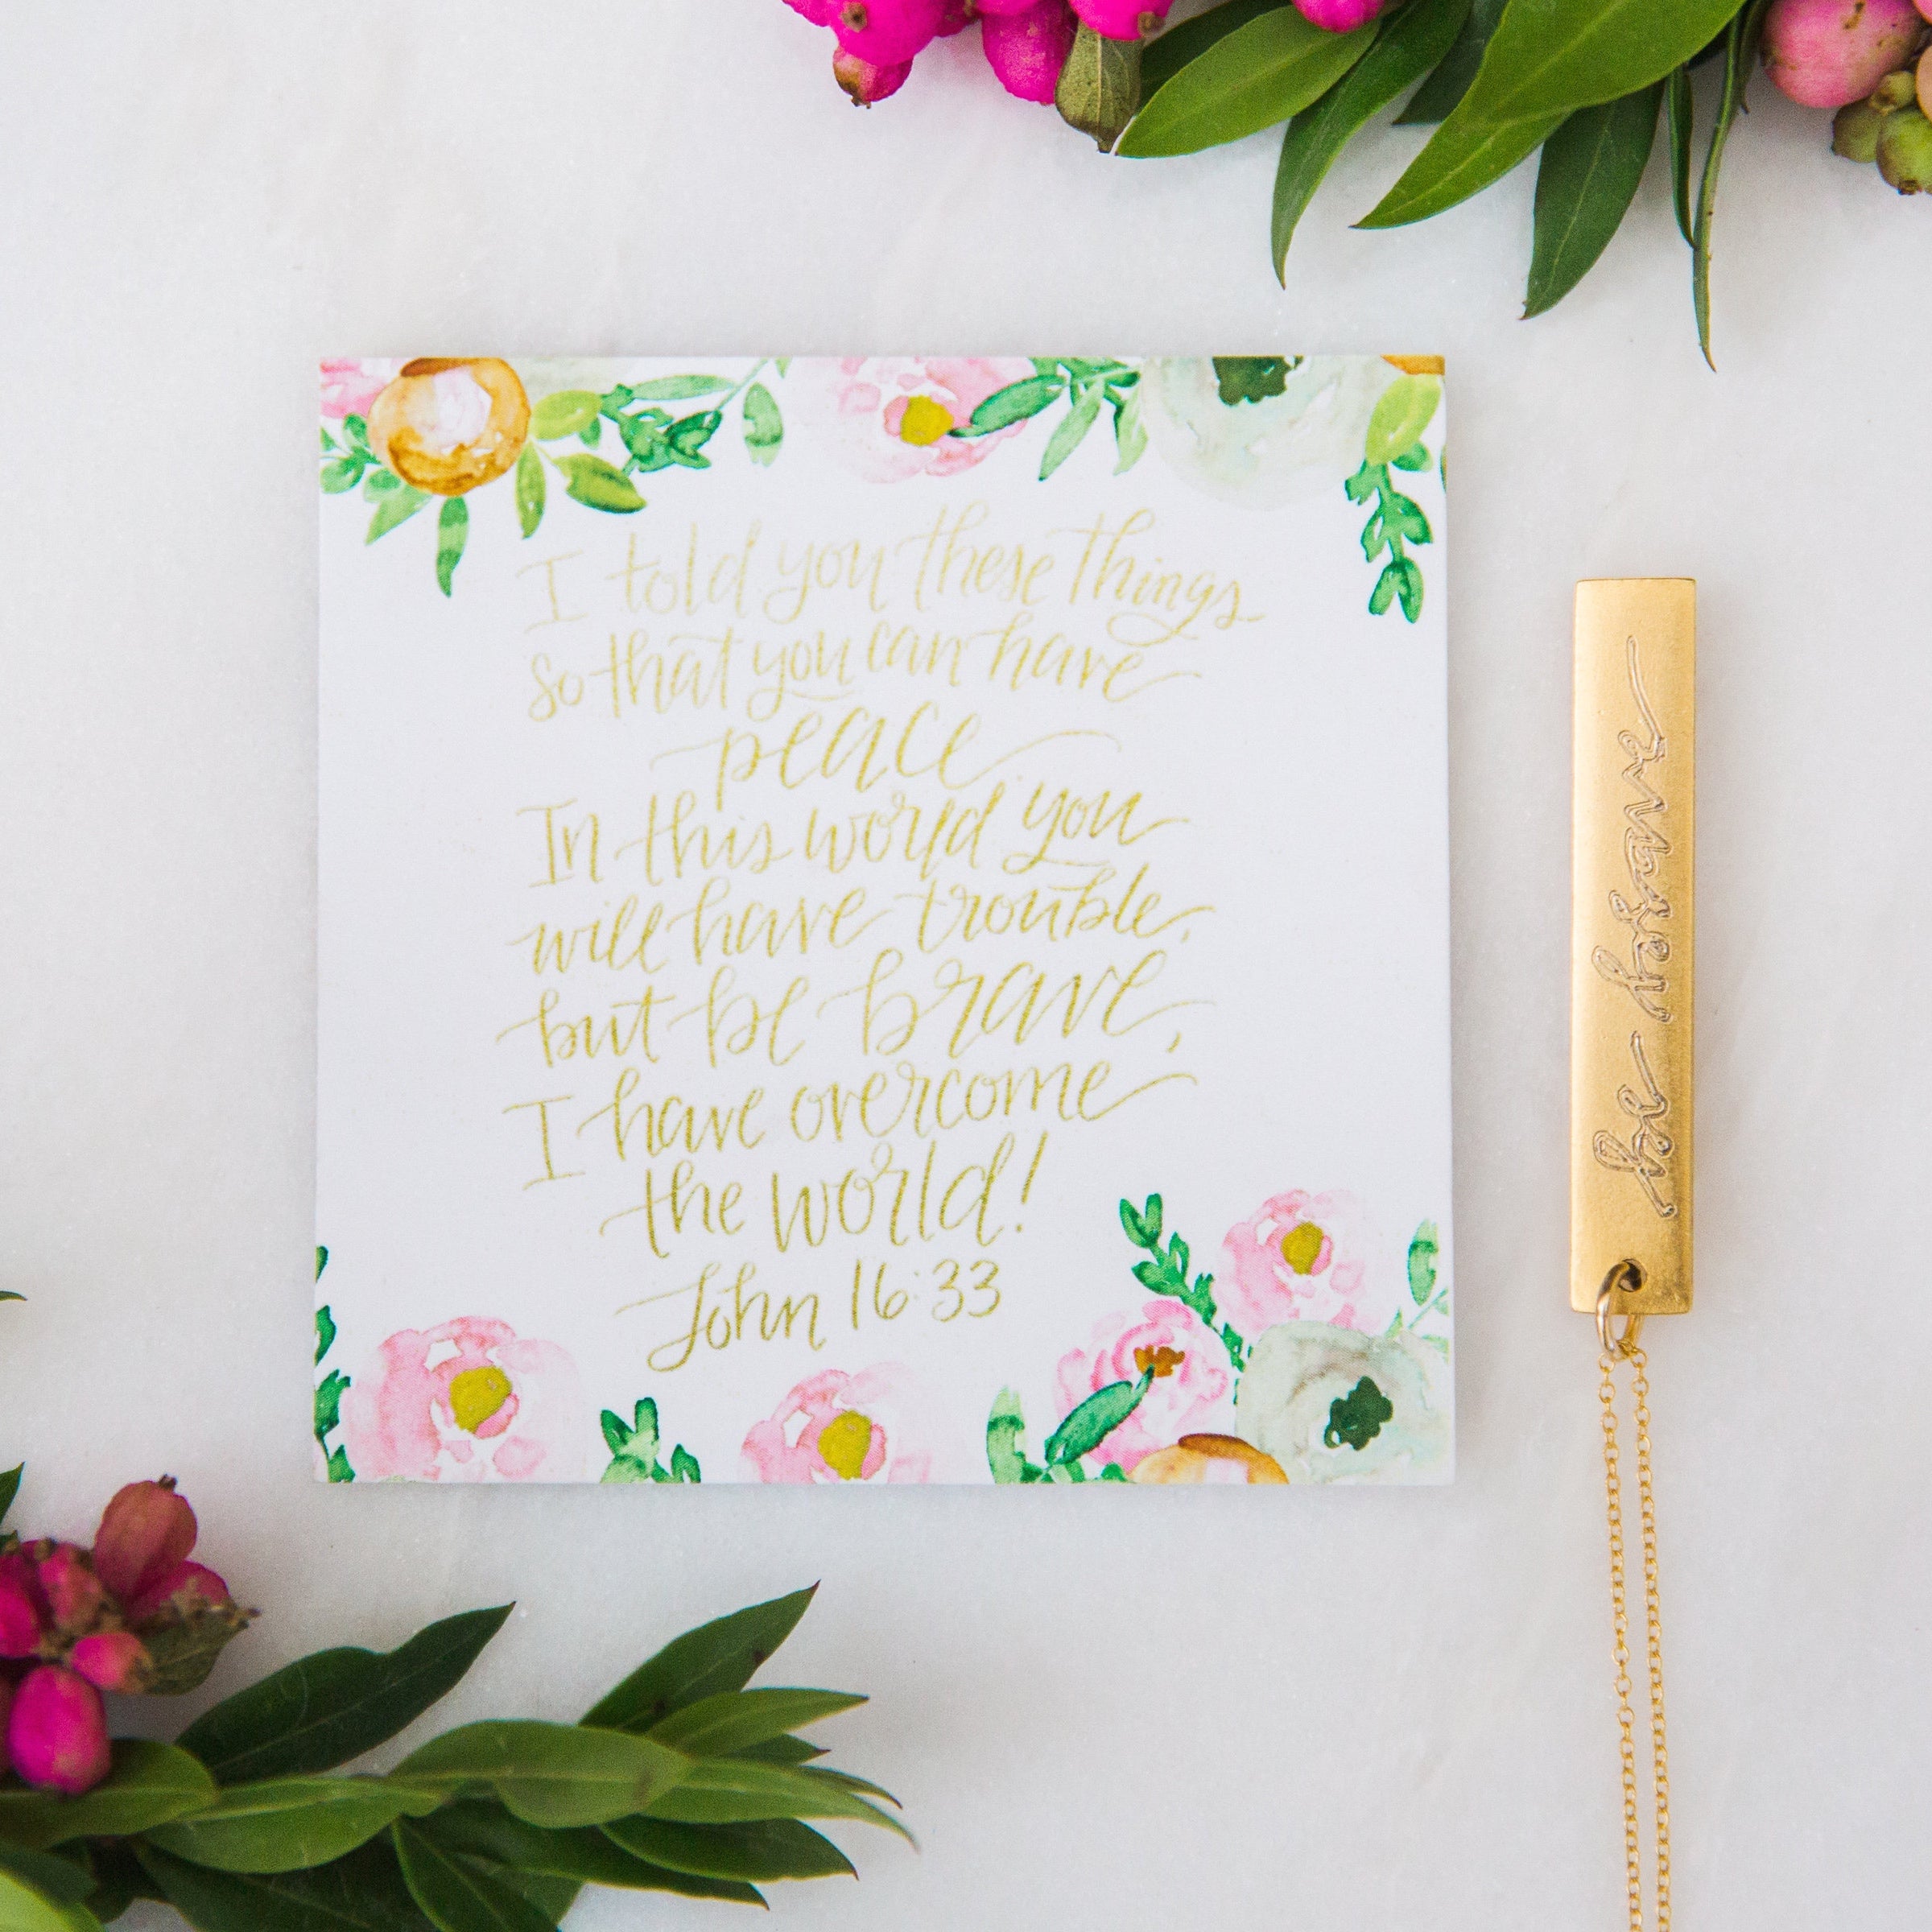 I told you these things
so that you can have
peace
In this world you
will have trouble,
but be brave,
I have overcome
the world!
John 16:33
be brave